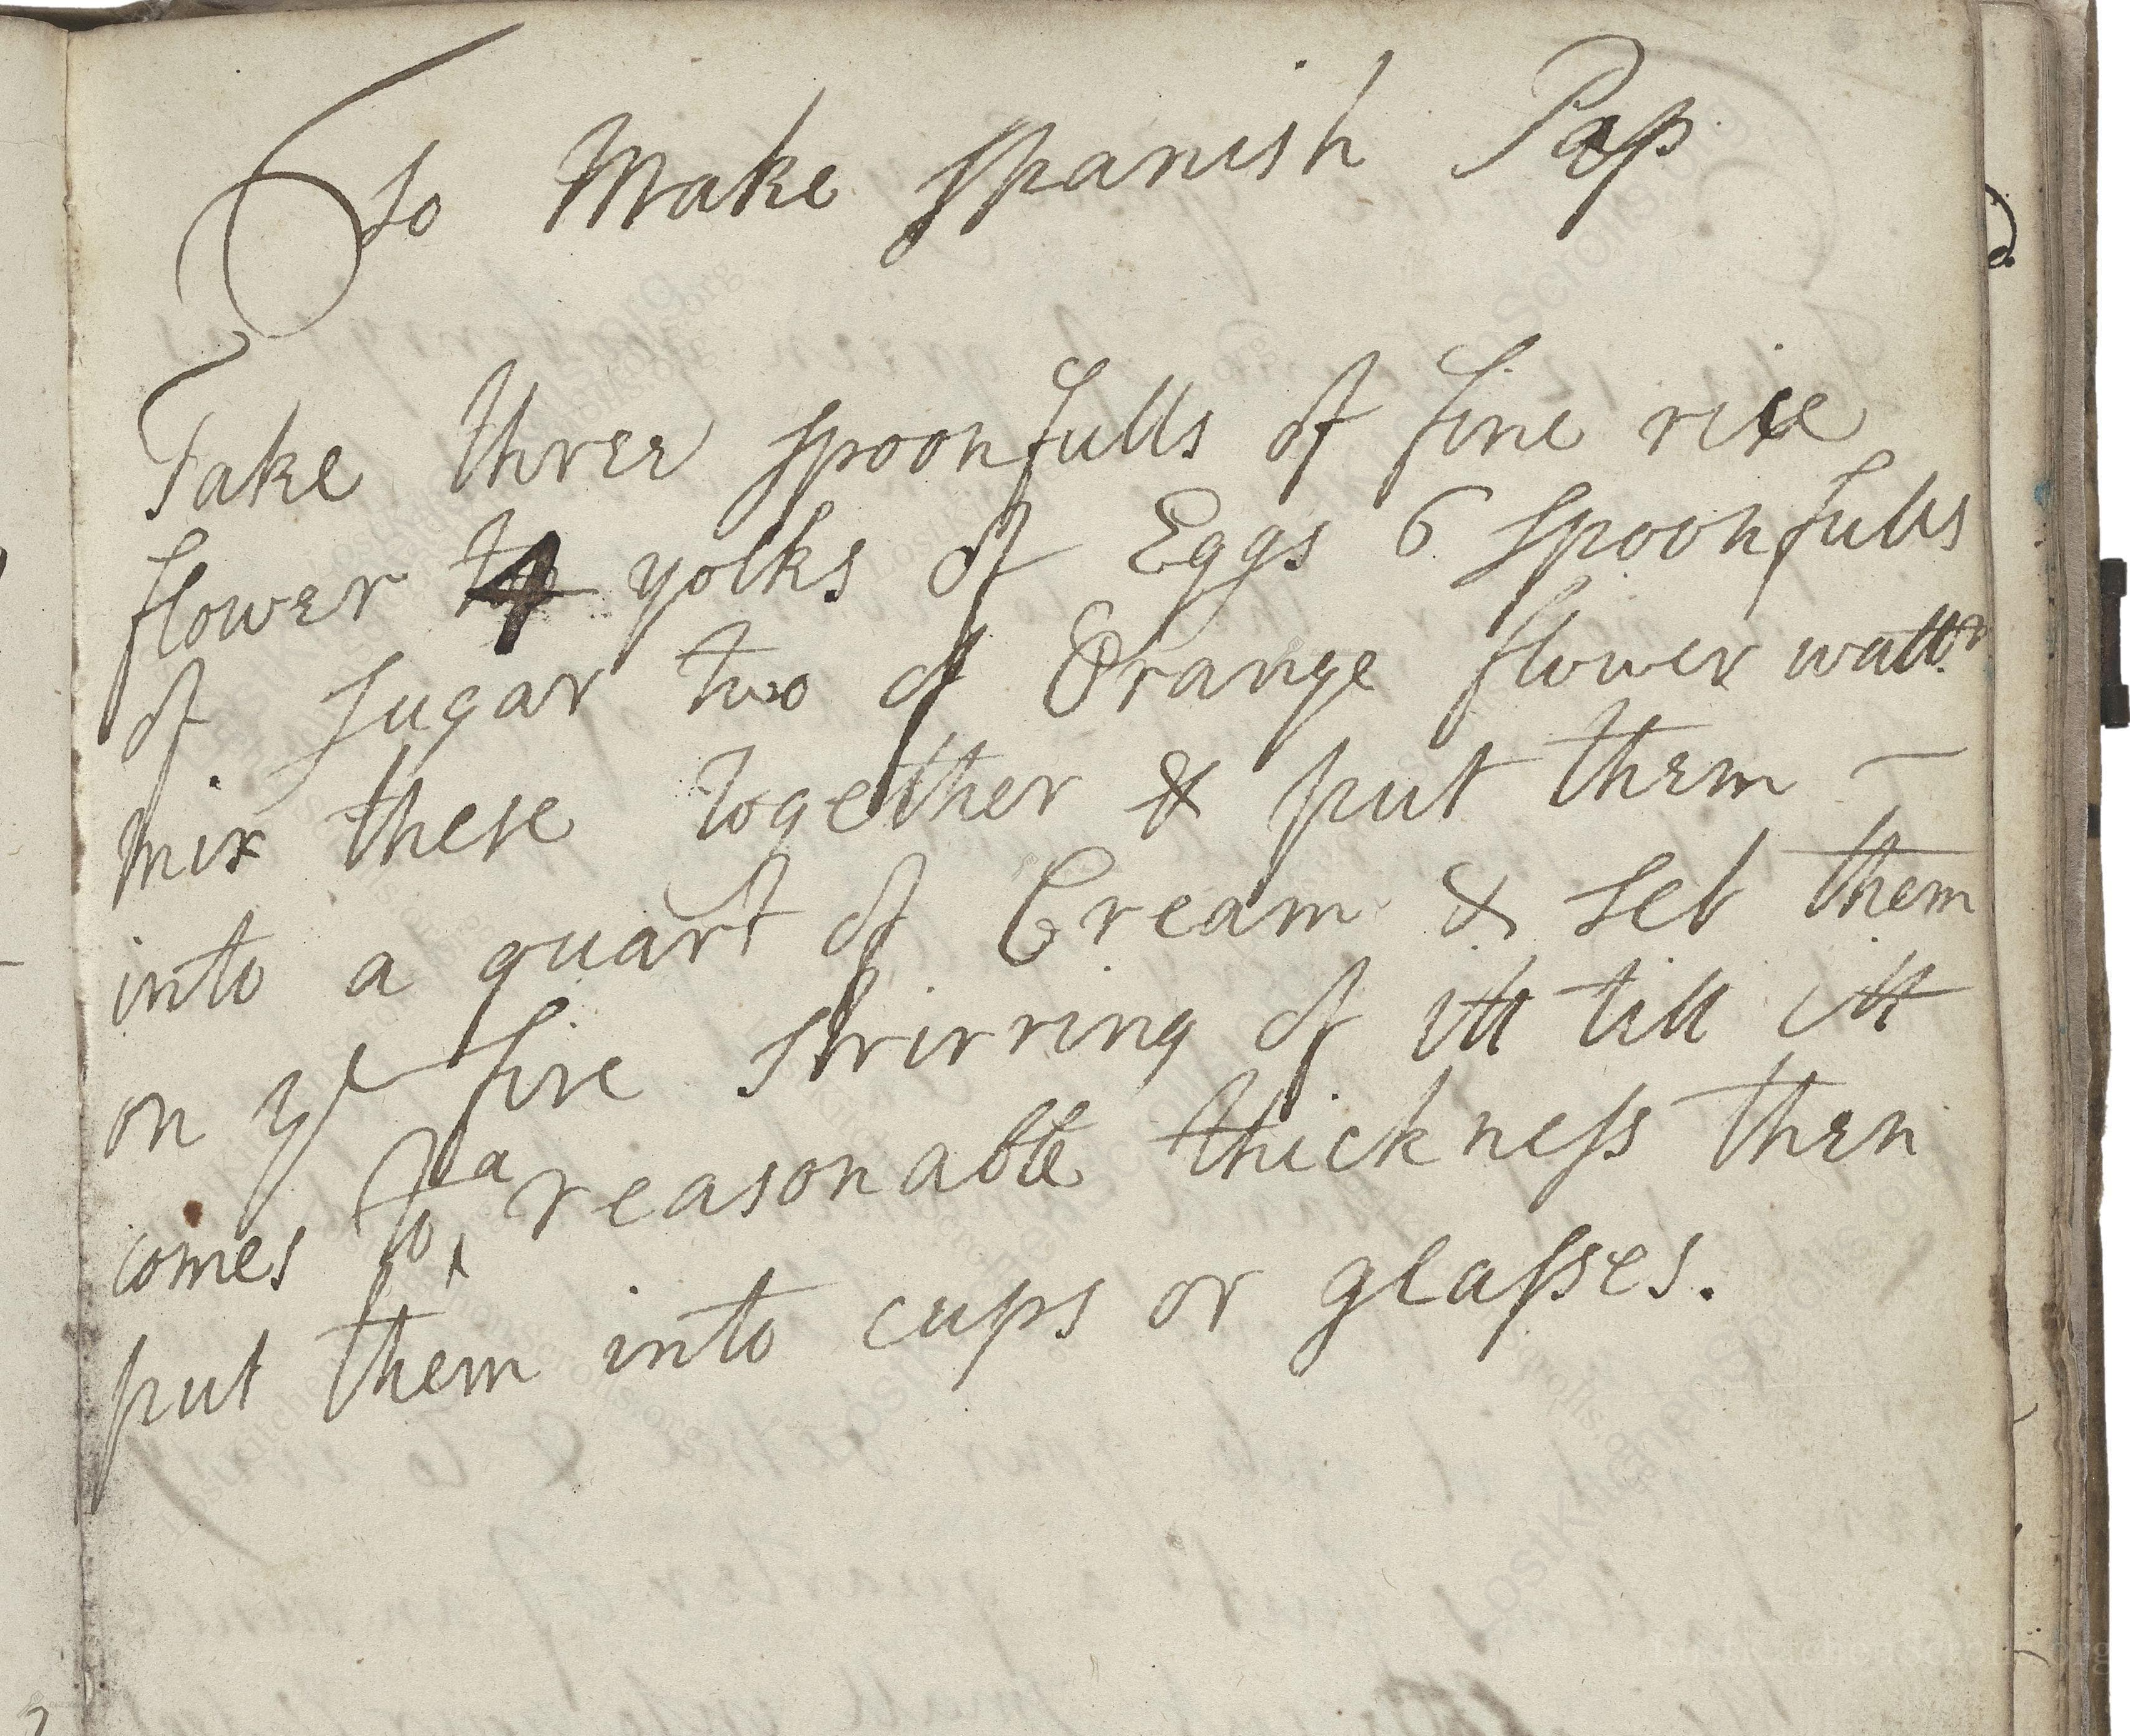 To Make spanish Pap
Take three spoonfulls of fine rice
flower 4 yolks of Eggs 6 spoonfulls
of sugar two of Orange flower watt.r
mix these together & put them —
into a quart of Cream & set them
on ye fire stirring of itt till itt
comes to a reasonable thickness then
put them into cups or glasses.